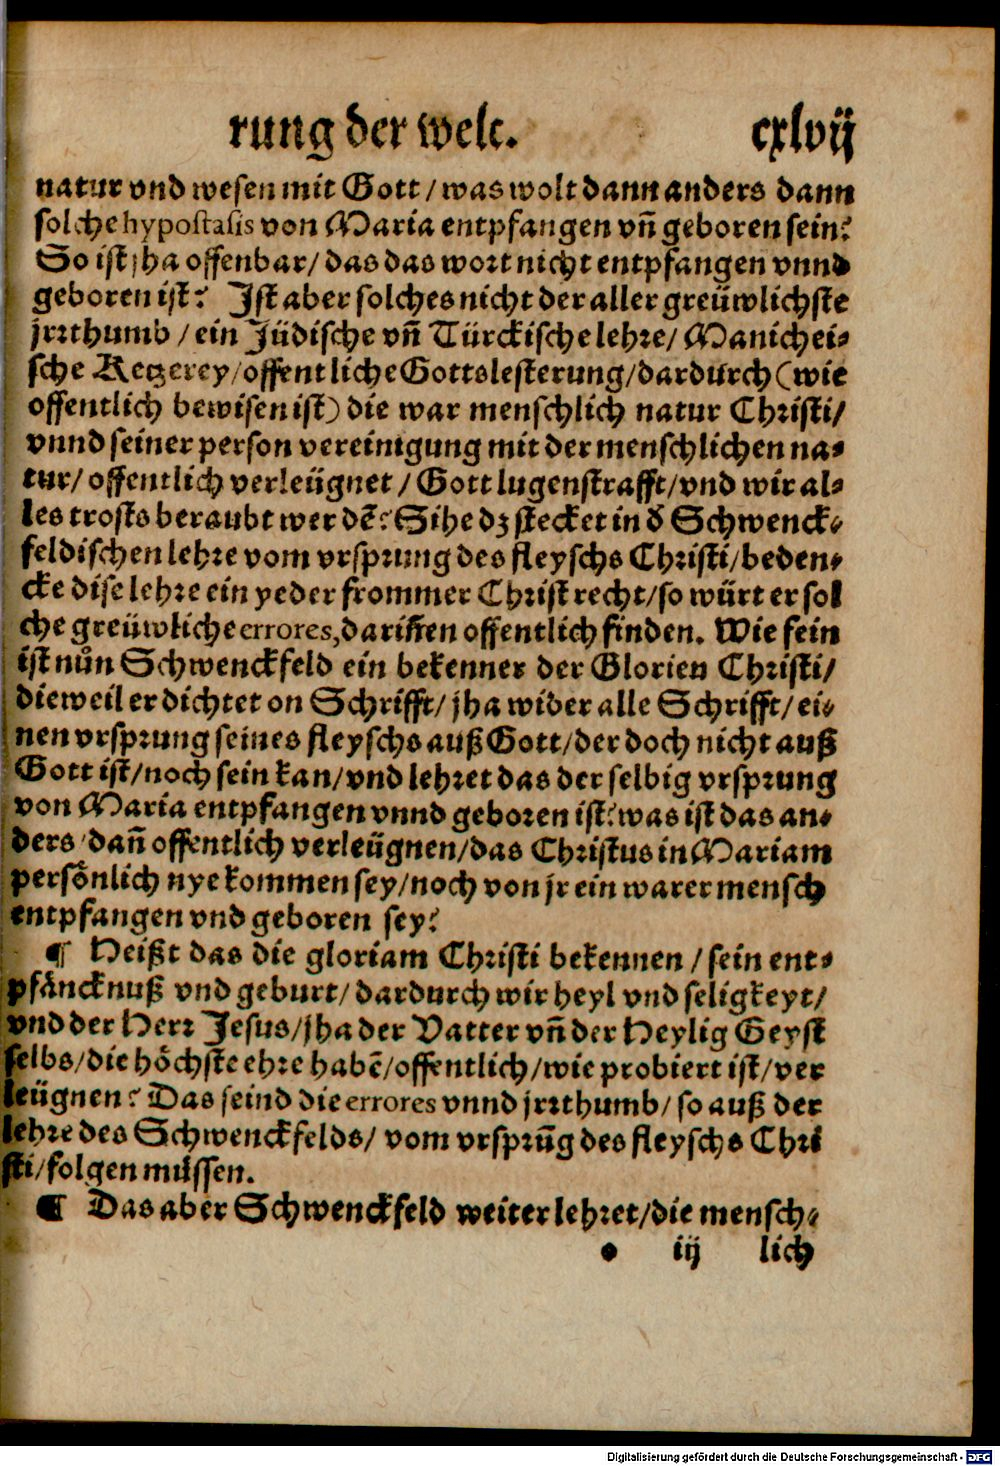 rung der welt. cxlvij
natur vnd wesen mit Gott / was wolt dann anders dann
solche hypostasis von Maria entpfangen vñ geboren sein?
So ist jha offenbar / das das wort nicht entpfangen vnnd
geboren ist? Jst aber solches nicht der aller greüwlichste
jrrthumb / ein Jüdische vñ Türckische lehre / Manichei⸗
sche Ketzerey / offentliche Gottslesterung / dardurch (wie
offentlich bewisen ist) die war menschlich natur Christi /
vnnd seiner person vereinigung mit der menschlichen na⸗
tur / offentlich verleügnet / Gott lugenstrafft / vnd wir al⸗
les trosts beraubt werdẽ? Sihe dz stecket in d̓ Schwenck⸗
feldischen lehre vom vrsprung des fleyschs Christi / beden⸗
cke dise lehre ein yeder frommer Christ recht / so würt er sol
che greüwliche errores, darinen offentlich finden. Wie fein
ist nůn Schwenckfeld ein bekenner der Glorien Christi /
dieweil er dichtet on Schrifft / jha wider alle Schrifft / ei⸗
nen vrsprung seines fleyschs auß Gott / der doch nicht auß
Gott ist / noch sein kan / vnd lehret das der selbig vrsprung
von Maria entpfangen vnnd geboren ist? was ist das an⸗
ders / dañ offentlich verleügnen / das Christus in Mariam
persönlich nye kommen sey / noch von jr ein warer mensch
entpfangen vnd geboren sey?
¶ Heißt das die gloriam Christi bekennen / sein ent⸗
pfäncknuß vnd geburt / dardurch wir heyl vnd seligkeyt /
vnd der Herr Jesus / jha der Vatter vñ der Heylig Geyst
selbs / die höchste ehre habẽ / offentlich / wie probiert ist / ver
leügnen? Das seind die errores vnnd jrrthumb / so auß der
lehre des Schwenckfelds / vom vrsprũg des fleyschs Chri
sti / folgen müssen.
¶ Das aber Schwenckfeld weiter lehret / die mensch⸗
• iij lich
Digitalisierung gefördert durch die Deutsche Forschungsgemeinschaft - DFG